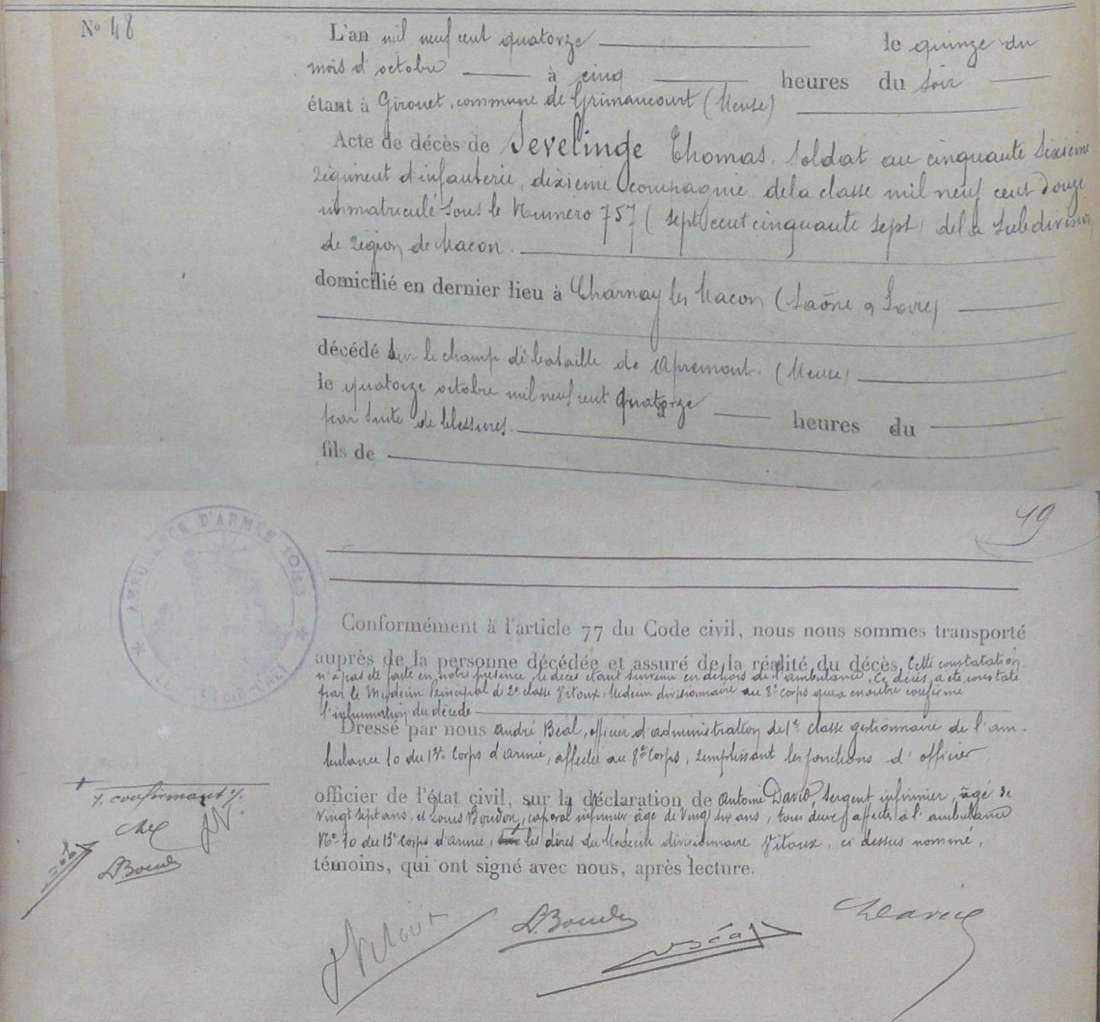 N° 48
L'an mil neuf cent quatorze le quinze du
mois d'octobre à cinq heures du soir
étant à Gironet, commune de Grimaucourt (Meuse)
Acte de décès de Sevelinge Thomas. Soldat au cinquante sixième
régiment d'infanterie, dixième compagnie de la classe mil neuf cent douze
immatriculé sous le Numéro 757 (sept cent cinquante sept) de la subdivision
de région de Macon.
domicilié en dernier lieu à Charnay les Macon (Saône & Loire)
décédé sur le champ de bataille de Apremont. (Meuse)
le quatorze octobre mil neuf cent quatorze heures du
par suite de blessures.
fils de
19
AMBULANCE D'ARMÉE 10/13
Conformément à l'article 77 du Code civil, nous nous sommes transporté
auprès de la personne décédée et assuré de la réalité du décès. Cette constatation
n'a pas été faite en notre présence, le décès étant survenu en dehors de l'ambulance. Ce décès a été constaté
par le Médecin Principal de 2e classe Vitoux, Médecin divisionnaire au 8e corps qui a en outre confirmé
l'inhumation du décédé
Dressé par nous André Béal, officier d'administration de 1e classe gestionnaire de l'am-
bulance 10 du 13e Corps d'armée, affectée au 8e Corps, remplissant les fonctions d'officier
officier de l'état civil, sur la déclaration de Antoine David, sergent infirmier, âgé de
vingt sept ans, et Louis Boudon, caporal infirmier âgé de vingt six ans, tous deux affectés à l'ambulance
N° 10 du 13e Corps d'armée, et les dires du Médecin divisionnaire Vitoux, ci dessus nommé,
témoins, qui ont signé avec nous, après lecture.
1. confirmant 1/.
JV
L. Boudon
Vitoux
L. Boudon
Béal
David